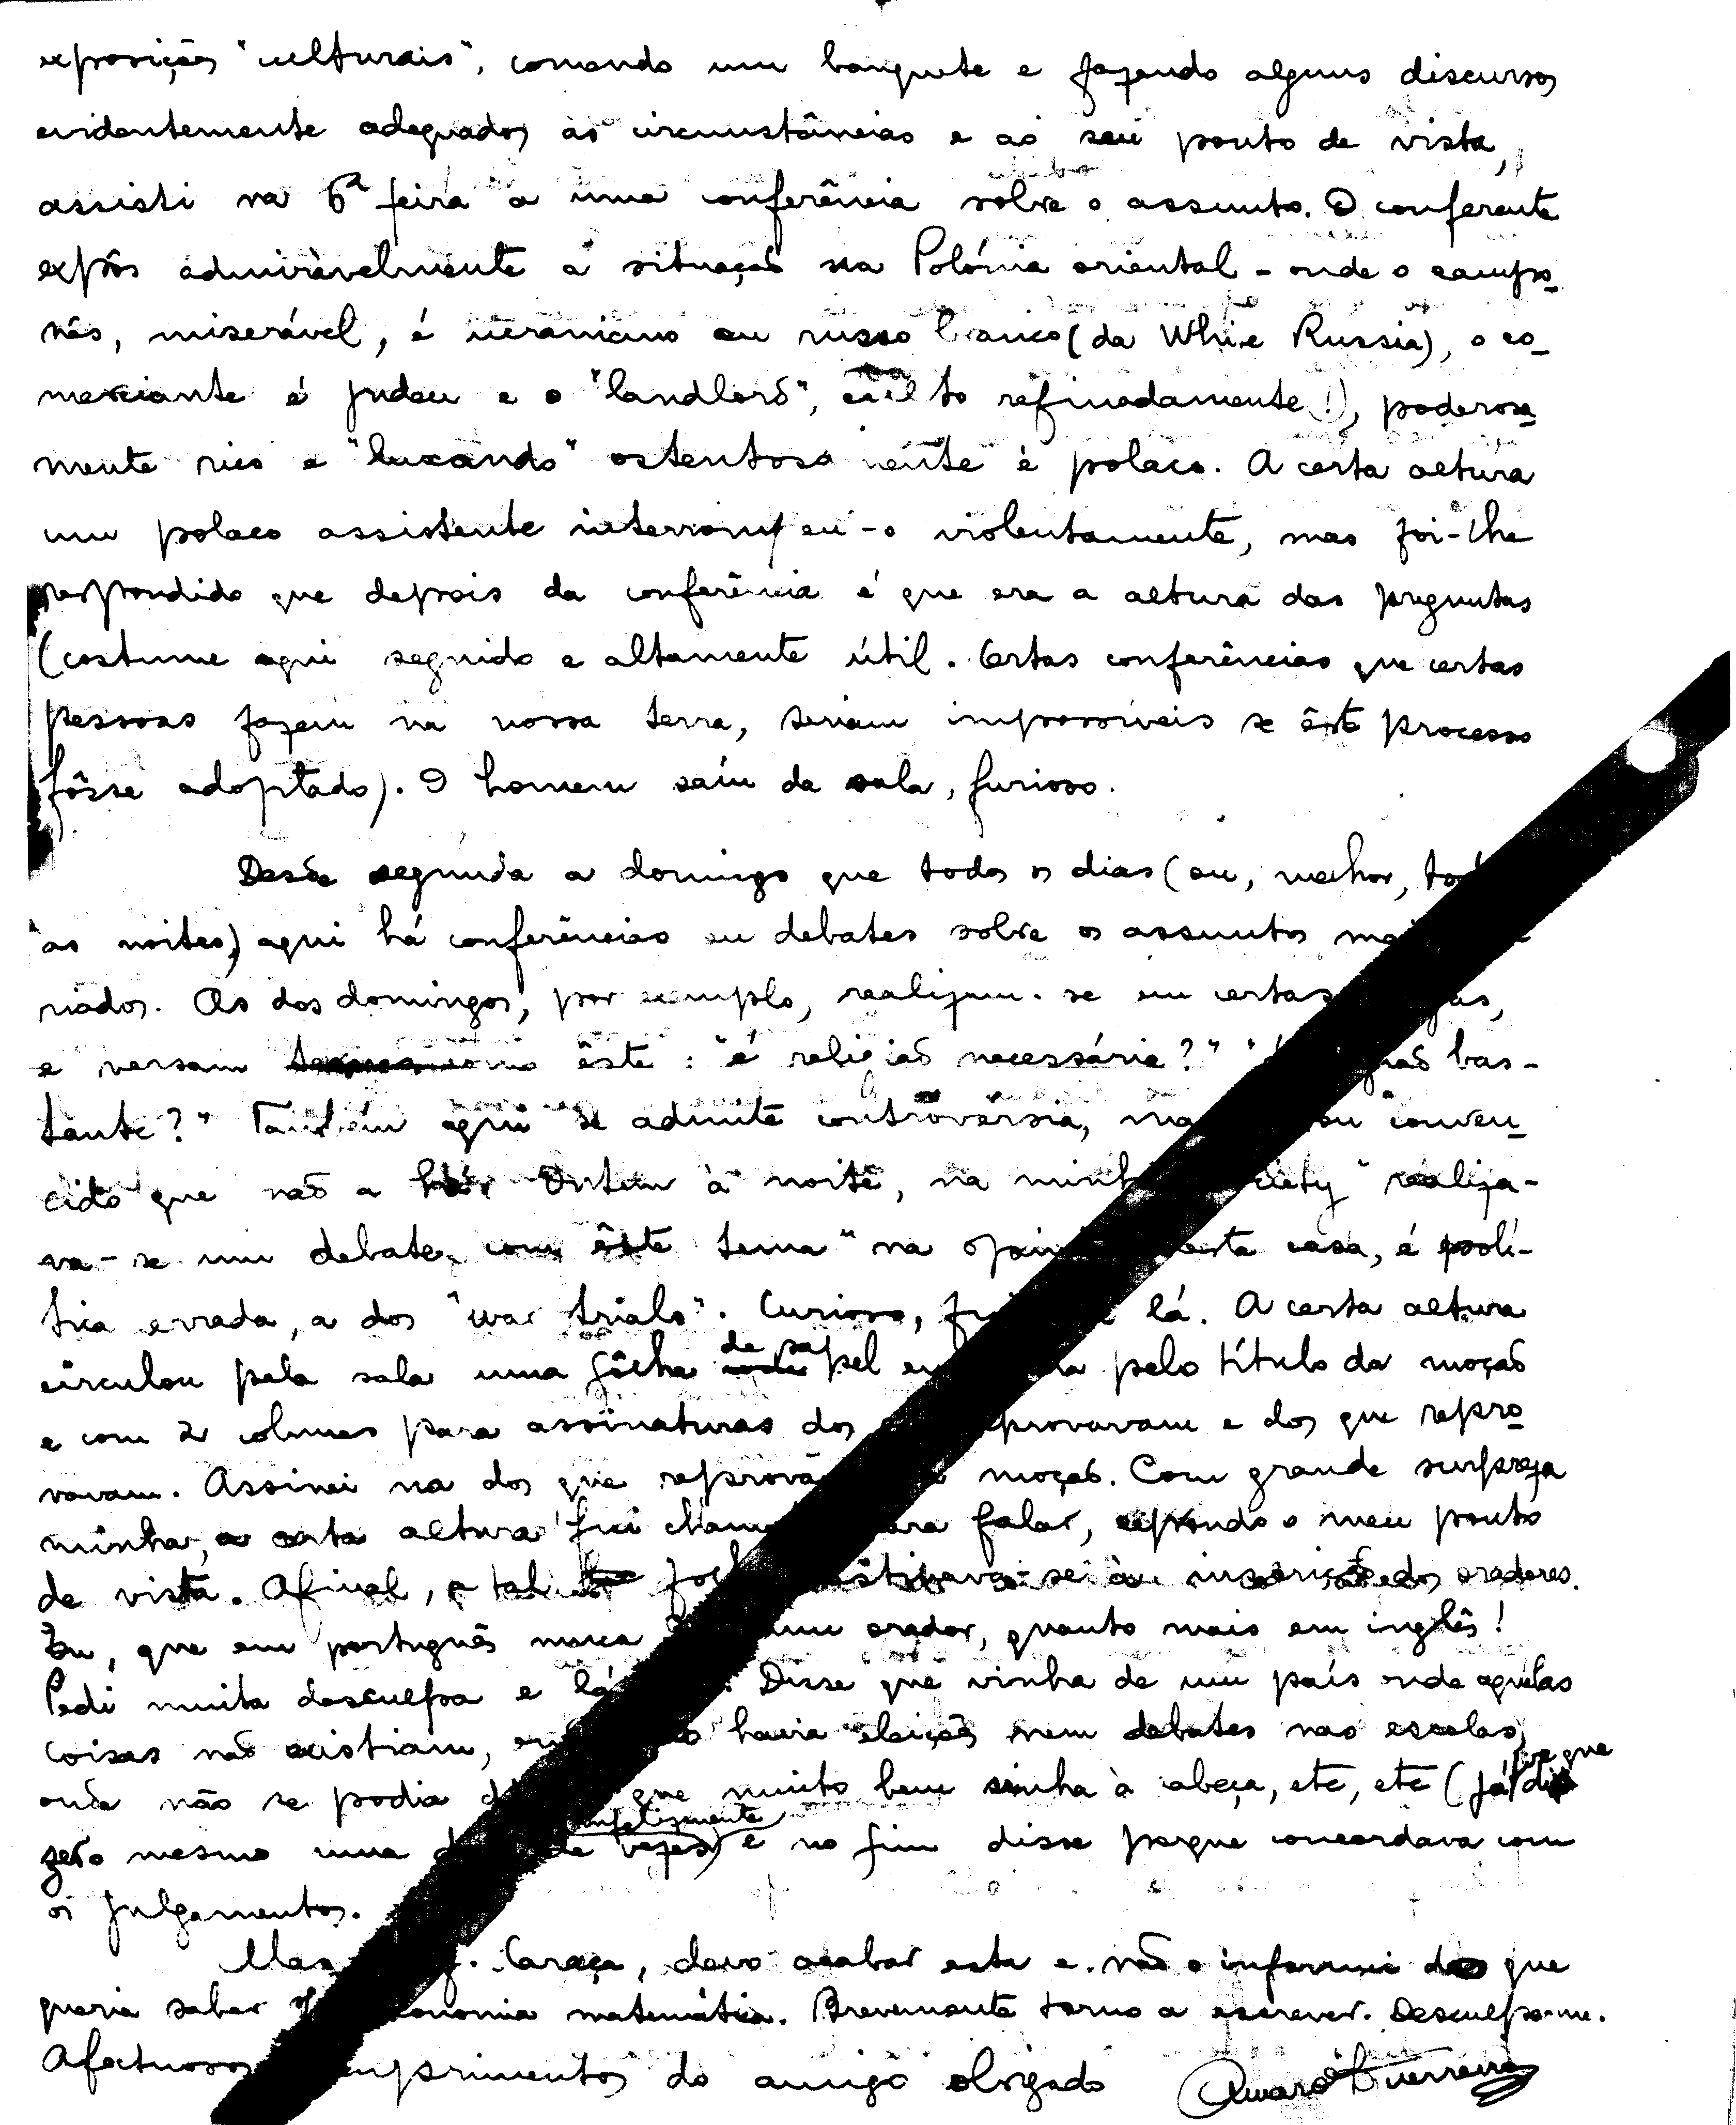 exposições "culturais", comendo um banquete e fazendo alguns discursos
evidentemente adequados às circunstâncias e ao seu ponto de vista,
assisti na 6ª feira a uma conferência sobre o assunto. O conferente
expôs admiràvelmente a situação na Polónia oriental - onde o campo-
nês, miserável, é ucraniano ou russo branco (da White Russia), o co-
merciante é judeu e o "landlord", culto refinadamente (!), poderosa-
mente rico e "luxando" ostentosamente é polaco. A certa altura
um polaco assistente interrompeu-o violentamente, mas foi-lhe
respondido que depois da conferência é que era a altura das preguntas
(costume aqui seguido e altamente útil. Certas conferências que certas
pessoas fazem na nossa terra, seriam impossíveis se êste processo
fôsse adoptado). O homem saíu da sala, furioso.
Desde segunda a domingo que todos os dias (ou, melhor,
as noites) aqui há conferências ou debates sobre os assuntos
riados. As dos domingos, por exemplo, realizam-se em certas
e versam como êste: "é religião necessária?" " bas-
tante?" Também aqui se admite controvérsia, conven-
cido que não a há. Ontem à noite, na realiza-
va-se um debate com êste tema "na casa, é polí-
tica errada, a dos "war trials". Curioso, lá. A certa altura
circulou pela sala uma fôlha de papel pelo título da moção
e com 2 colunas para assinaturas dos aprovavam e dos que repro-
vavam. Assinei na dos que moção. Com grande surpreza
minha, a certa altura fui falar, expondo o meu ponto
de vista. Afinal, a tal inscrição dos oradores.
Eu, que em português nunca orador, quanto mais em inglês!
Pedi muita desculpa e lá Disse que vinha de um país onde aquelas
coisas não existiam, havia eleições nem debates nas escolas,
onde não se podia que muito bem vinha à cabeça, etc, etc (já
mesmo uma infelizmente vezes) e no fim disse porque concordava com
os julgamentos.
Caraça, devo acabar esta e não o informei do que
queria saber matemática. Brevemente torno a escrever. Desculpe-me.
Afectuosos cumprimentos do amigo obrigado